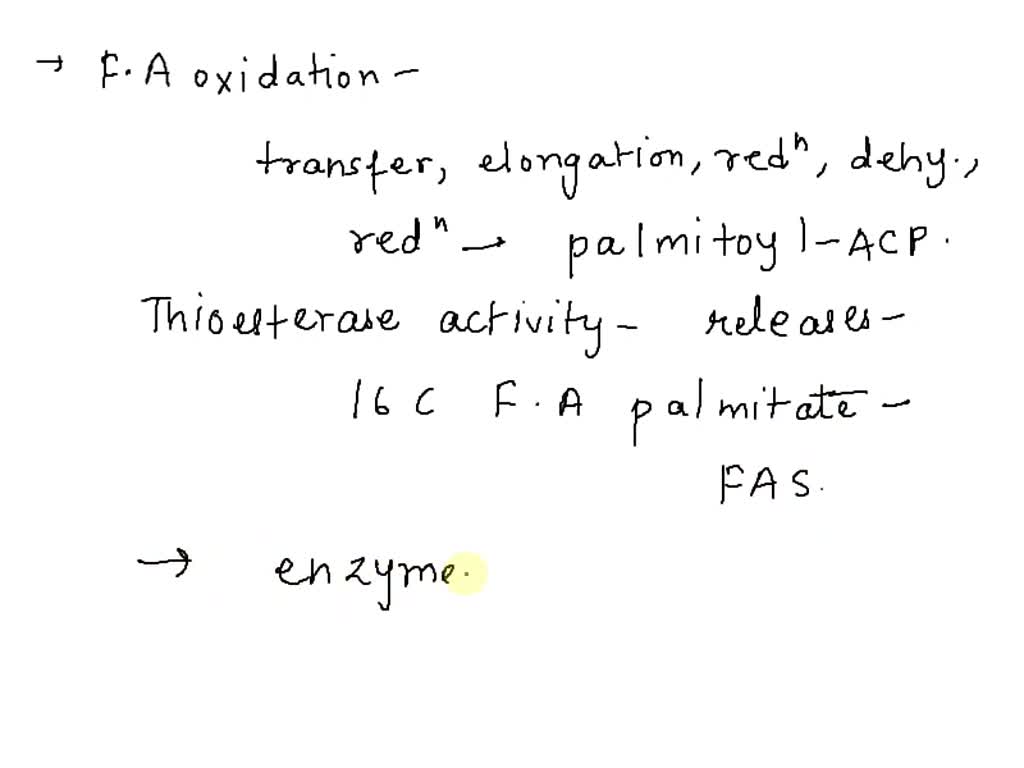 → F.A oxidation –
transfer, elongation, redⁿ, dehy.,
redⁿ → palmitoyl-ACP.
Thioesterase activity – releases –
16 C F.A palmitate –
FAS.
→ enzyme.